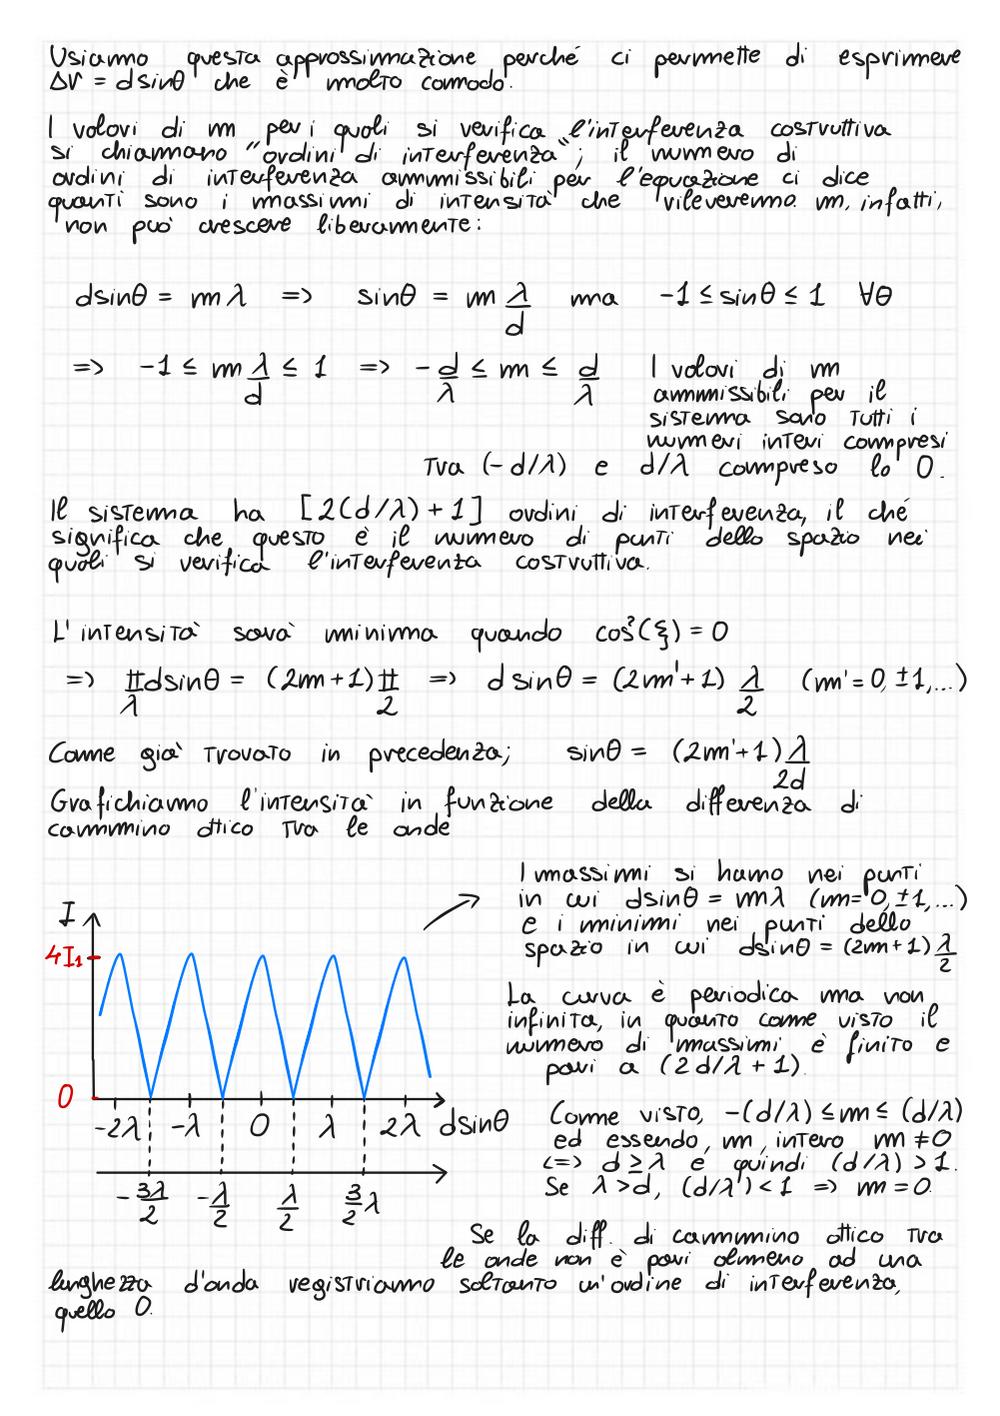 Usiamo questa approssimazione perché ci permette di esprimere
Δr = dsinθ che è molto comodo.
I valori di m per i quali si verifica l'interferenza costruttiva
si chiamano "ordini di interferenza"; il numero di
ordini di interferenza ammissibili per l'equazione ci dice
quanti sono i massimi di intensità che rileveremo. m, infatti,
non può crescere liberamente:
dsinθ = mλ => sinθ = m λ/d ma -1 ≤ sinθ ≤ 1 ∀θ
=> -1 ≤ m λ/d ≤ 1 => -d/λ ≤ m ≤ d/λ I valori di m
ammissibili per il
sistema sono tutti i
numeri interi compresi
tra (-d/λ) e d/λ compreso lo 0.
Il sistema ha [2(d/λ)+1] ordini di interferenza, il ché
significa che questo è il numero di punti dello spazio nei
quali si verifica l'interferenza costruttiva.
L'intensità sarà minima quando cos²(ξ) = 0
=> π/λ dsinθ = (2m+1)π/2 => dsinθ = (2m'+1) λ/2 (m'= 0, ±1,...)
Come già trovato in precedenza; sinθ = (2m'+1)λ/2d
Grafichiamo l'intensità in funzione della differenza di
cammino ottico tra le onde
I massimi si hanno nei punti
in cui dsinθ = mλ (m= 0,±1,...)
e i minimi nei punti dello
spazio in cui dsinθ = (2m+1)λ/2
I
4I₁
0
-2λ -λ 0 λ 2λ dsinθ
-3λ/2 -λ/2 λ/2 3/2 λ
La curva è periodica ma non
infinita, in quanto come visto il
numero di massimi è finito e
pari a (2d/λ+1).
Come visto, -(d/λ) ≤ m ≤ (d/λ)
ed essendo, m, intero m ≠ 0
<=> d ≥ λ e quindi (d/λ) > 1.
Se λ > d, (d/λ) < 1 => m = 0.
Se la diff. di cammino ottico tra
le onde non è pari almeno ad una
lunghezza d'onda registriamo soltanto un'ordine di interferenza,
quello 0.